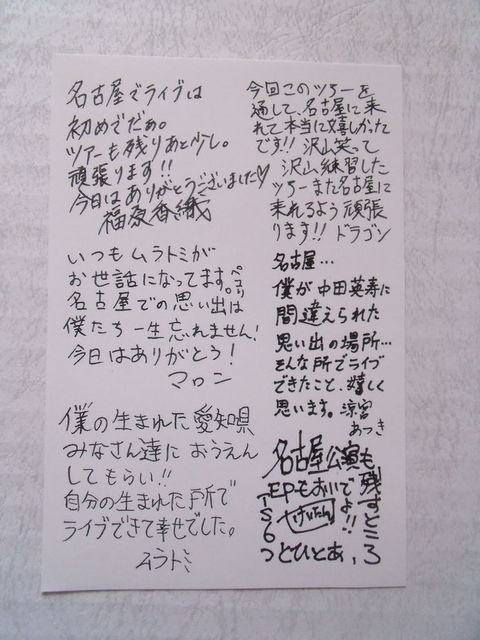 名古屋でライブは
初めてだぁ。
ツアーも残りあと少し。
頑張ります!!
今日はありがとうございました♡
福原香織
いつもムラトミが
お世話になってます。ペコリ
名古屋での思い出は
僕たち一生忘れません!
今日はありがとう!
マロン
僕の生まれた愛知県
みなさん達に おうえん
してもらい!!
自分の生まれた所で
ライブできて幸せでした。
ムラトミ
今回このツアーを
通して、名古屋に来
れて本当に嬉しかった
です!! 沢山笑って
沢山練習した
ツアーまた名古屋に
来れるよう頑張
ります!! ドラゴン
名古屋…
僕が中田英寿に
間違えられた
思い出の場所…
そんな所でライブ
できたこと、嬉しく
思います。涼宮
あつき
名古屋公演も
残すところ
あとひとつ,
EPもおいでよ!!
けいたん